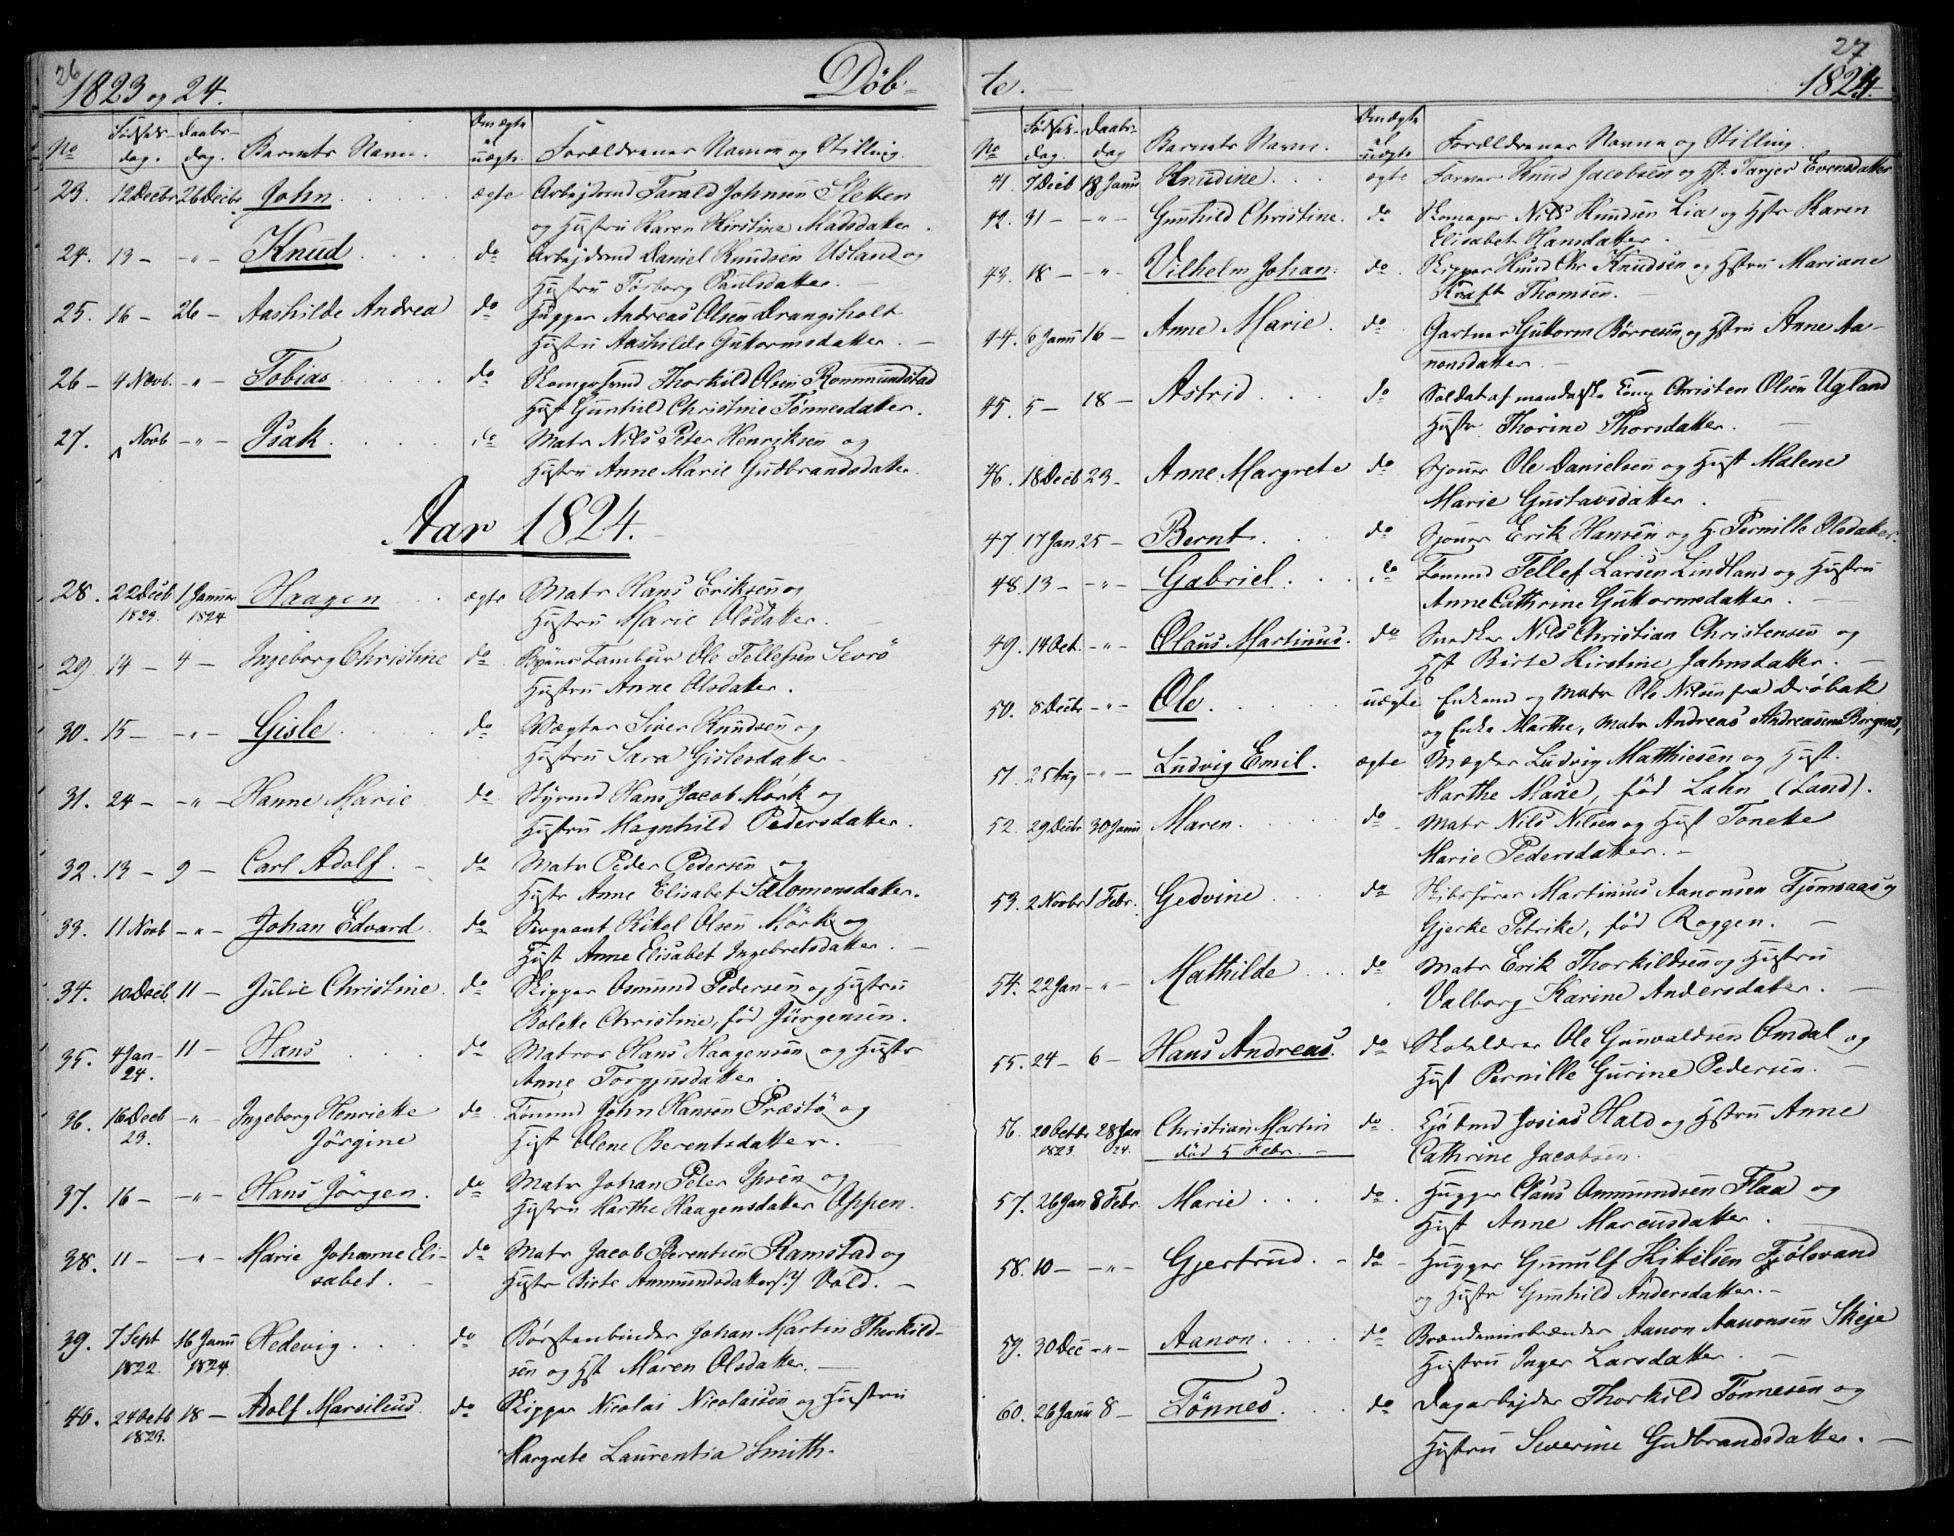 26
1823 og 24. Døb-
No Fødsels-dag. Daabs-dag. Barnets Navn. Om ægte el uægte. Forældrenes Navne og Stilling.
23. 12 Decbr 26 Decbr. John ægte Arbejdsmd Tarald Johnsen Sletten
og Hustru Karen Kirstine Madsdatter.
24. 13 - -"- Knud do Arbejdsmd Daniel Knudsen Usland og
Hustru Torborg Paulsdatter. -
25. 16 - 26 - Aashilde Andrea do Hugger Andreas Olsen Drangsholt
Hustru Aashilde Guttormsdatter. -
26 - 4 Novb. -"- Tobias do Thorkild Olsen Rommundstad
Hust Gunhild Christine Tønnesdatter.
27. Novb -"- Isak do Matr Nils Peter Henriksen og
Hustru Anne Marie Gudbrandsdatter.
Aar 1824.
28. 22 Decb 1823. 1 Januar 1824 Haagen ægte Matr Hans Eriksen og
Hustru Marie Olsdatter. -
29. 14 - 4 - Ingeborg Christine do Byens Tambur Ole Tellefsen Sevrö
Hustru Anne Olsdatter.
30. 15 - -"- Gisle do Vægter Siver Knudsen og
Hustru Sara Gislesdatter -
31. 24 - -"- Hanne Marie do Styrmd Hans Jacob Mørk og
Hustru Magnhild Pedersdatter.
32. 13 - 9 - Carl Adolf. - do Matr Peder Pedersen og
Hustr Anne Elisabet Salomonsdatter.
33. 11 Novb -"- Johan Edvard do Sergeant Kittel Olsen Mörk og
Hust Anne Elisabet Ingebretsdatter. -
34. 10 Decb. 11 - Julie Christine. do Skipper Osmund Pedersen og Hustru
Bolette Christine, fød Jürgensen.
35. 4 Jan- 24. 11 - Hans do Matros Hans Haagensen og Hustr
Anne Torgjusdatter
36. 16 Decb 23. -"- Ingeborg Henriette do Tømmd John Hansen Præstö og
Jörgine Hust Olene Berentsdatter. -
37. 16 - -"- Hans Jörgen. do Matr Johan Peter Ipsen og
Hustru Marthe Haagensdatter Oppen.
38. 11 - -"- Marie Johanne Eli- do Matr Jacob Berentsen Ramstad og
sabet. - Hustr Birte Ammundsdatter (?) Vold. -
39. 7 Sept 1822. 16 Janu 1824. Hedevig. do Børstenbinder Johan Martin Thorkild-
sen og Hst Maren Olsdatter. -
40. 24 Octb 1823. 18 - Adolf Marsilius. do Skipper Nicolai Nicolaisen og Hustru
Margrete Laurentia Smith.
27
te. - 1824.
No Fødsels-dag. Daabs-dag Barnets Navn. Om ægte el uægte Forældrenes Navne og Stilling.
41. 7 Decb 18 Janu Knudine. ægte Knud Jacobsen og H: Tarjer Evensdatter
42. 31 - -"- Gunhild Christine. do Skomager Nils Knudsen Lia og Hstr Karen
Elisabet Hansdatter. -
43. 18 - -"- Vilhelm Johan. do. Skipper Knud Chr Knudsen og Hstru Mariane
Kraft Thomsen. -
44. 6 Janu 16 - Anne Marie. do. Gartner Guttorm Börresen og Hstru Anne Aa-
nonsdatter. -
45. 5 - 18 - Astrid. do Soldat af mandalske Comp Christen Olsen Ugland
Hustr. Thorine Thorsdatter. -
46. 18 Decb 23 - Anne Margrete do. Sjouer Ole Danielsen og Hust Malene
Marie Gustavsdatter.
47. 17 Jan 25 - Bernt. do Sjouer Erik Hansen og H. Pernille Olsdatter.
48. 13 - -"- Gabriel. do Tømmd Tellef Larsen Lindland og Hustru
Anne Cathrine Guttormsdatter. -
49. 14 Oct. -"- Olaus Martinus. do Snedker Nils Christian Christensen og
Hst Birte Kirstine Jahnsdatter. -
50. 8 Decbr -"- Ole. uægte Enkemd og Matr Ole Nilsen fra Dröbak
og Enke Marthe, Matr Andreas Andreasens Borgend,
51. 25 Aug -"- Ludvig Emil. ægte Mægler Ludvig Matthiesen og Hust.
Marthe Marie, fød Lahn (Land).
52. 29 Decbr 30 Janu Maren. do. Matr Nils Nilsen og Hust Tonette
Marie Pedersdatter. -
53. 2 Novbr 1 Febr. Gedvine do Skibsfører Martinius Aanonsen Tjömsaas og
Gjerke Petrike, fød Roggen. -
54. 22 Jan -"- Mathilde do Matr Erik Thorkildsen og Hustru
Valborg Karine Andersdatter. -
55. 24 - 6 - Hans Andreas. do Skolelærer Ole Gunvaldsen Omdal og
Hust Pernille Gurine Pedersen. -
56. 20 Octbr 1823. 28 Jan 24. Christian Martin do. Kjöbmd Josias Hald og Hstru Anne
död 5 Febr. - Cathrine Jacobsen.
57. 26 Jan 8 Febr Marie do. Hugger Claus Ommundsen Flaa og
Hust Anne Marcusdatter.
58. 10 - -"- Gjertrud. - do - Hugger Gunulf Kittelsen Fjölsvand
og Hustr Gunhild Andersdatter. -
59. 30 Dec -"- Aanon. do Brændevinsbrænder Aanon Aanonsen Skeje
Hustru Inger Larsdatter -
60. 26 Janu 8 - Tönnes. do Dagarbejder Thorkild Tönnesen og
Hustru Severine Gudbrandsdatter. -